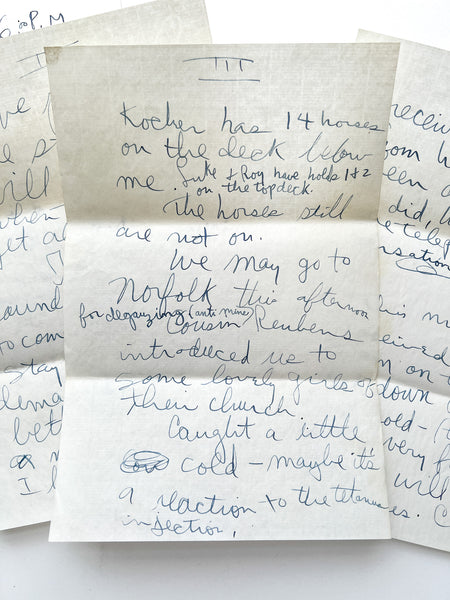 III
Kocher has 14 horses
on the deck below
me. Luke & Roy have holds 1 & 2
on the top deck.
The horses still
are not on.
We may go to
Norfolk this afternoon
for degauzing (anti mine)
Cousin Reubens
introduced us to
some lovely girls of down
their church.
Caught a little
cold - maybe it's
a reaction to the tetanus
injection.
6:00 P.M
III
will
when
stay
bet
I
receiv
did,
ived
on
old-
very
will